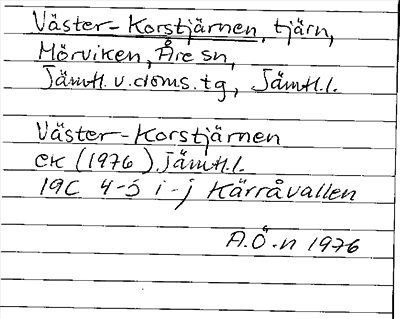 Väster-Korstjärnen, tjärn,
Mörviken, Åre sn,
Jämtl. v. doms. tg, Jämtl. l.
Väster-Korstjärnen
ek (1976), Jämtl. l.
19C 4-5 i-j Kärråvallen
A.Ö-n 1976